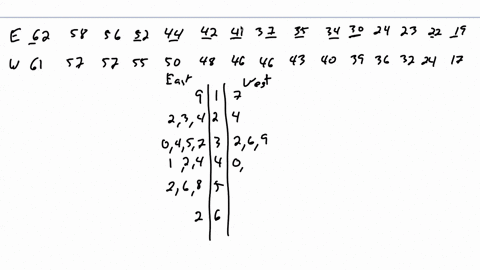 E 62 58 56 52 44 42 41 37 35 34 30 24 23 22 19
W 61 57 57 55 50 48 46 46 43 40 39 36 32 24 17
East West
9 | 1 | 7
2,3,4 | 2 | 4
0,4,5,7 | 3 | 2,6,9
1,2,4 | 4 | 0,
2,6,8 | 5 |
2 | 6 |